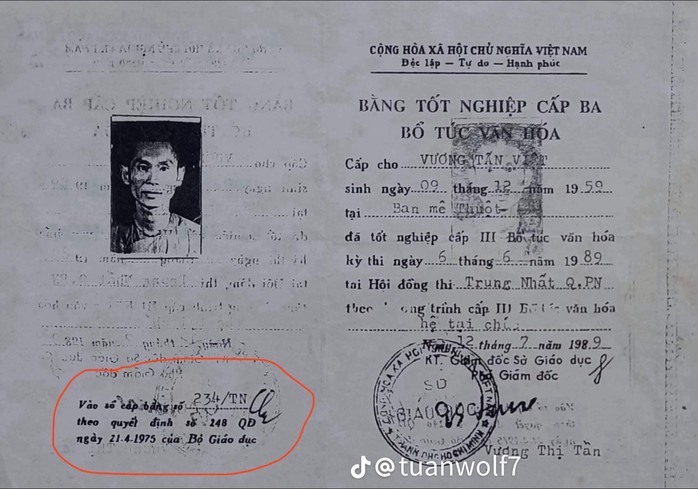 Vào sổ cấp bằng số 234/TN
theo quyết định số 248 QĐ
ngày 21.4.1975 của Bộ Giáo dục
CỘNG HÒA XÃ HỘI CHỦ NGHĨA VIỆT NAM
Độc lập — Tự do — Hạnh phúc
BẰNG TỐT NGHIỆP CẤP BA
BỔ TÚC VĂN HÓA
Cấp cho VƯƠNG TẤN VIỆT
sinh ngày 09 tháng 12 năm 1959
tại Ban mê Thuột
đã tốt nghiệp cấp III Bổ túc văn hóa
kỳ thi ngày 6 tháng 6 năm 1989
tại Hội đồng thi Trung Nhất Q.PN
theo chương trình cấp III Bổ túc văn hóa
hệ tại chức
12 tháng 7 năm 1989
KT. Giám đốc Sở Giáo dục
Phó Giám đốc
SỞ
GIÁO DỤC
Vương Thị Tần
@tuanwolf7